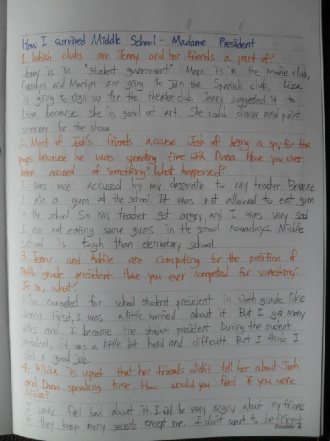 How I survived Middle School - Madame President
1. Which clubs are Jenny and her friends a part of?
Jenny is in "student government". Marc is in the movie club,
Carolyn and Marilyn are going to join the Spanish club. Liza
is going to sign up for the theater club. Jenny suggested it to
Liza because she is good at art. She could draw and paint
scenery for the show.
2. Most of Josh's friends accuse Josh of being a spy for the
because he was spending time with Dana. Have you ever
been accused of something? What happened?
I was once accused by my classmate to my teacher. Because
ate a gum at the school. It was not allowed to eat gum
in the school. So my teacher got angry, and I was very sad
I am not eating some gums in the school nowadays. Middle
school is tough than elementary school.
3. Jenny and Addie are competing for the position of
Sixth grade president. Have you ever competed for something?
If so, what?
I for school student president in sixth grade like
Jenny. First, I was a little worried about it. But I got many
votes and I became the student president. During the student
president, it was a little bit hard and difficult. But I think I
did a good job.
4. is upset that her friends didn't tell her about Josh
and Dana spending time. How would you feel if you were
I would feel bad about it. I will be very angry about my friends
they keep many secrets except me. I don't want to be friend